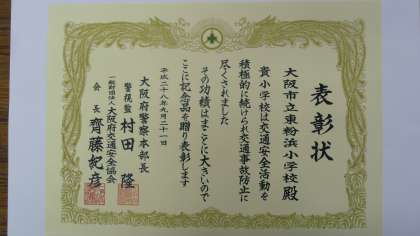 表彰状
大阪市立東粉浜小学校殿
貴小学校は交通安全活動を
積極的に続けられ交通事故防止に
尽くされました
その功績はまことに大きいので
ここに記念品を贈り表彰します
平成二十八年九月二十一日
大阪府警察本部長
警視監 村田隆
一般財団法人大阪府交通安全協会
会長 齊藤紀彦